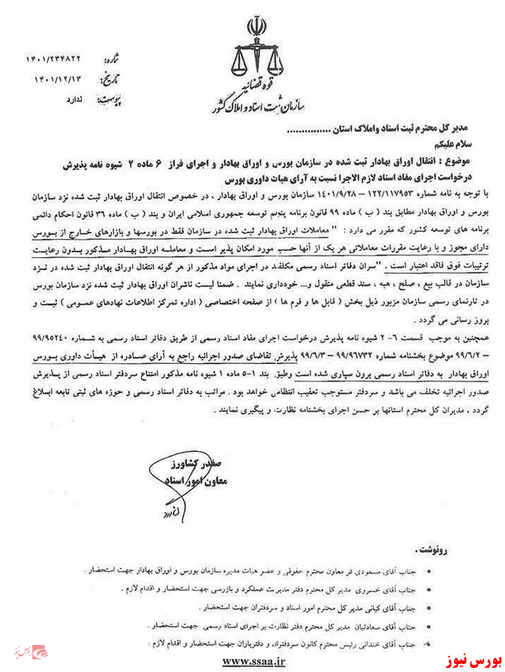 قوه قضائیه
سازمان ثبت اسناد و املاک کشور
شماره: ۱۴۰۱/۲۳۴۸۲۲
تاریخ: ۱۴۰۱/۱۲/۱۳
پیوست: ندارد
مدیر کل محترم ثبت اسناد واملاک استان ................
سلام علیکم
موضوع : انتقال اوراق بهادار ثبت شده در سازمان بورس و اوراق بهادار و اجرای فراز ۶ ماده ۲ شیوه نامه پذیرش
درخواست اجرای مفاد اسناد لازم الاجرا نسبت به آرای هیات داوری بورس
با توجه به نامه شماره ۱۲۲/۱۱۷۹۵۳ – ۱۴۰۱/۹/۲۸ سازمان بورس و اوراق بهادار ، در خصوص انتقال اوراق بهادار ثبت شده نزد سازمان
بورس و اوراق بهادار مطابق بند ( ب ) ماده ۹۹ قانون برنامه پنجم توسعه جمهوری اسلامی ایران و بند ( ب ) ماده ۳۶ قانون احکام دائمی
برنامه های توسعه کشور که مقرر می دارد : " معاملات اوراق بهادار ثبت شده در سازمان فقط در بورسها و بازارهای خارج از بورس
دارای مجوز و با رعایت مقررات معاملاتی هر یک از آنها حسب مورد امکان پذیر است و معامله اوراق بهادار مذکور بدون رعایت
ترتیبات فوق فاقد اعتبار است . " سران دفاتر اسناد رسمی مکلفند در اجرای مواد مذکور از هر گونه انتقال اوراق بهادار ثبت شده در نزد
سازمان در قالب بیع ، صلح ، هبه ، سند قطعی منقول و... خودداری نمایند . ضمنا لیست ناشران اوراق بهادار ثبت شده نزد سازمان
در تارنمای رسمی سازمان مزبور ذیل بخش ( فایل ها و فرم ها ) از صفحه اختصاصی ( اداره تمرکز اطلاعات نهادهای عمومی ) ثبت و
بروز رسانی می گردد .
همچنین به موجب قسمت ۶-۲ شیوه نامه پذیرش درخواست اجرای مفاد اسناد رسمی از طریق دفاتر اسناد رسمی به شماره ۹۹/۹۵۲۴۰
– ۹۹/۶/۲ موضوع بخشنامه شماره ۹۹/۹۶۷۳۲ – ۹۹/۶/۳ پذیرش تقاضای صدور اجرائیه راجع به آرای صادره از هیأت داوری بورس
اوراق بهادار به دفاتر اسناد رسمی برون سپاری شده است وطبق بند ۱-۵ ماده ۱ شیوه نامه مذکور امتناع سردفتر اسناد رسمی از پذیرش
صدور اجرائیه تخلف می باشد و سردفتر مستوجب تعقیب انتظامی خواهد بود . مراتب به دفاتر اسناد رسمی و حوزه های ثبتی تابعه ابلاغ
گردد . مدیران کل محترم استانها بر حسن اجرای بخشنامه نظارت و پیگیری نمایند .
صفدر کشاورز
معاون امور اسناد
رونوشت .
جناب آقای مسعودی فر معاون محترم حقوقی و عضو هیات مدیره سازمان بورس و اوراق بهادار جهت استحضار .
جناب آقای خسروی مدیر کل محترم دفتر مدیریت عملکرد و بازرسی جهت استحضار و اقدام لازم .
جناب آقای کیانی مدیر کل محترم امور اسناد و سردفتران جهت استحضار .
جناب آقای سعادتیان مدیر کل محترم دفتر نظارت بر اجرای اسناد رسمی جهت استحضار .
جناب آقای خندانی رئیس محترم کانون سردفتران و دفتریاران جهت استحضار و اقدام لازم .
www.ssaa.ir
بورس نیوز